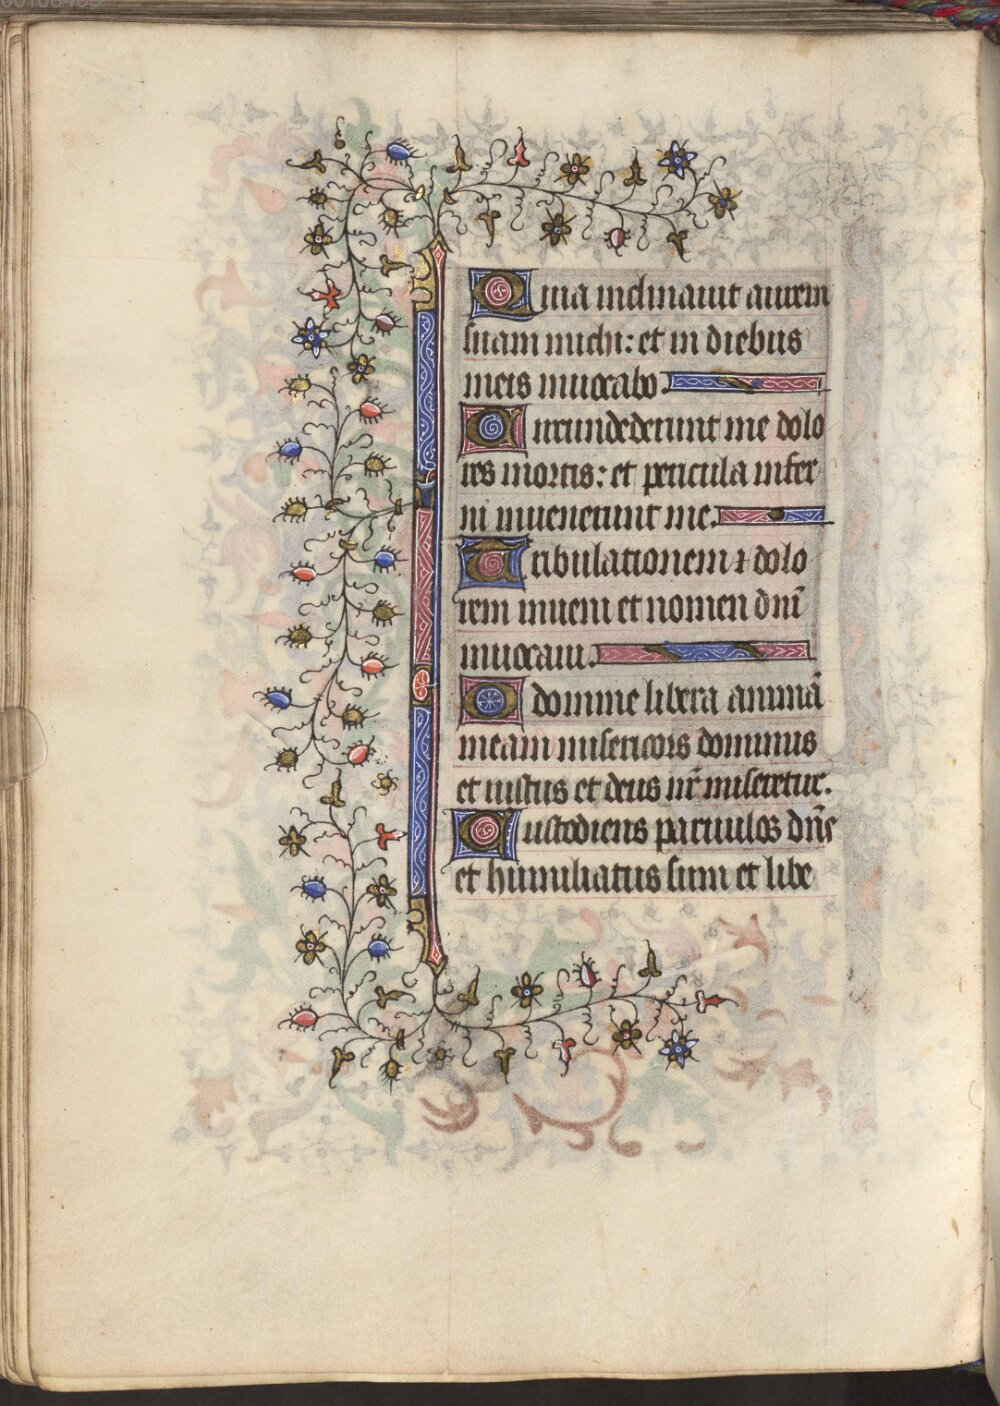 Quia inclinauit aurem
suam michi: et in diebus
meis inuocabo.
Circundederunt me dolo
res mortis: et pericula infer
ni inuenerunt me.
Tribulationem ⁊ dolo
rem inueni et nomen dnī
inuocaui.
O domine libera animā
meam misericors dominus
et iustus et deus nr̄ miseretur.
Custodiens paruulos dn̄s
et humiliatus sum et libe